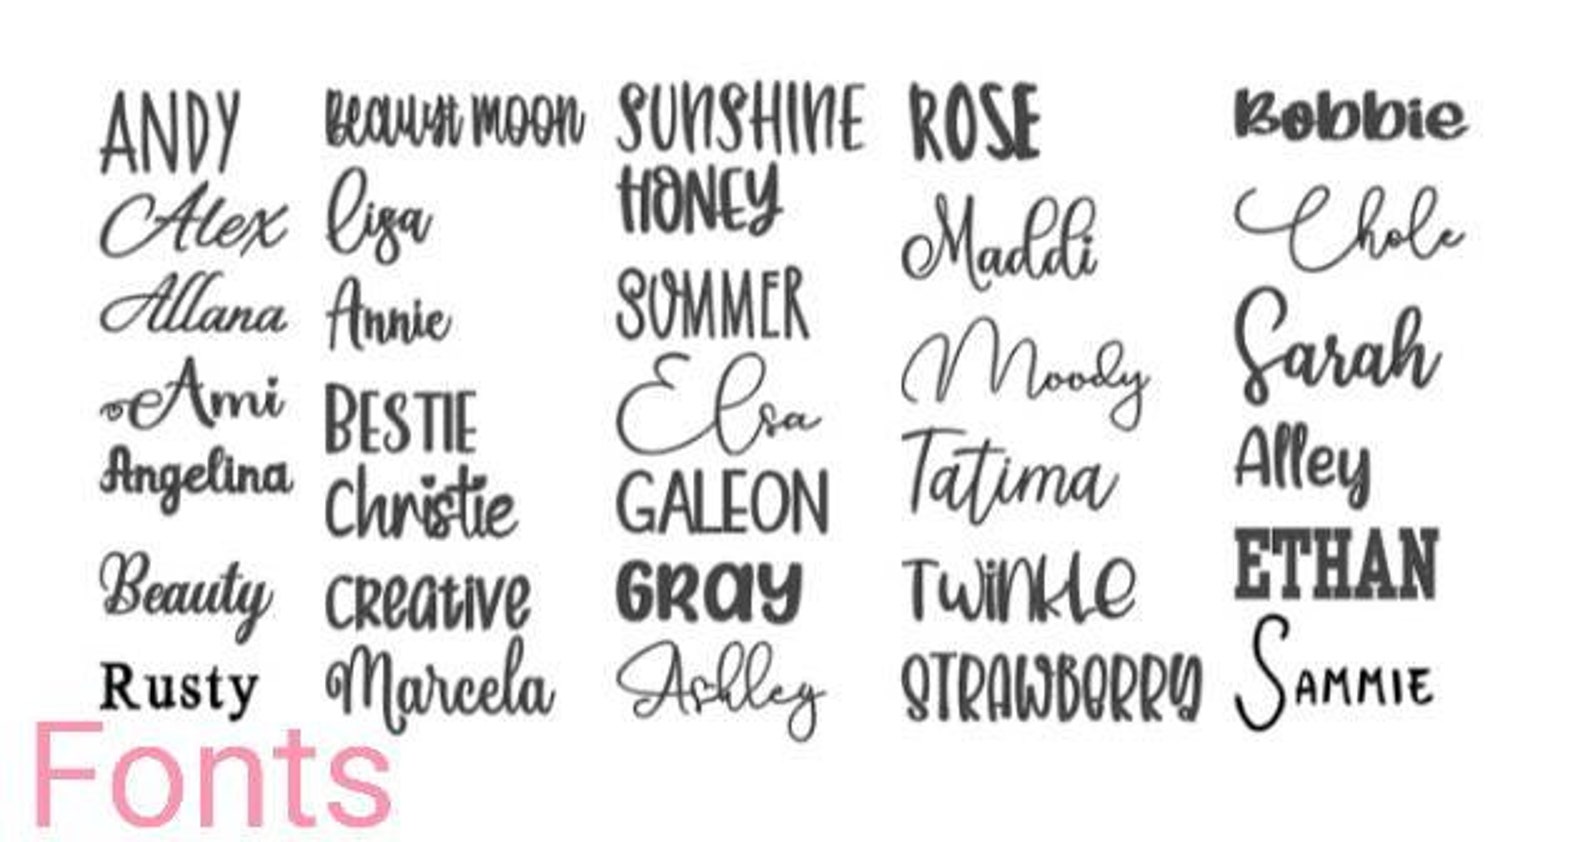 ANDY
Alex
Allana
Ami
Angelina
Beauty
Rusty
Beauyst moon
Lisa
Annie
BESTIE
Christie
creative
Marcela
SUNSHINE
HONEY
SUMMER
Elsa
GALEON
GRAY
Ashley
ROSE
Maddi
Moody
Tatima
Twinkle
STRAWBERRY
Bobbie
Chole
Sarah
Alley
ETHAN
SAMMIE
Fonts